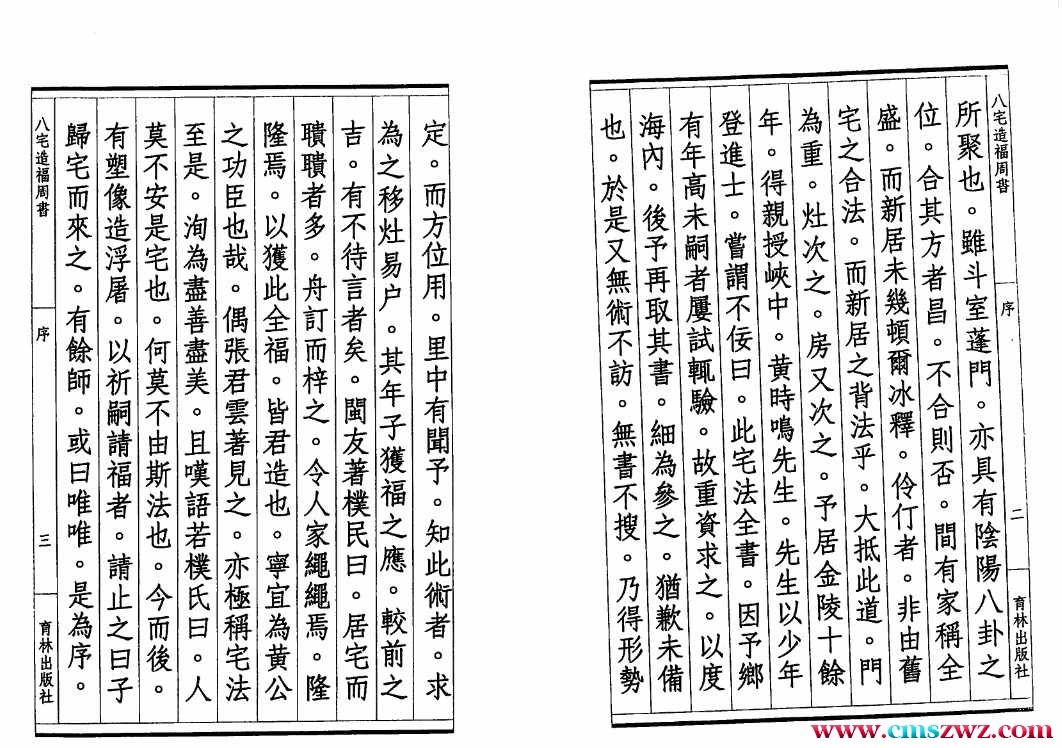 八宅造福周書
序
二
育林出版社
所聚也。雖斗室蓬門。亦具有陰陽八卦之
位。合其方者昌。不合則否。間有家稱全
盛。而新居未幾頓爾冰釋。伶仃者。非由舊
宅之合法。而新居之背法乎。大抵此道。門
為重。灶次之。房又次之。予居金陵十餘
年。得親授峽中。黄時鳴先生。先生以少年
登進士。嘗謂不佞曰。此宅法全書。因予鄉
有年高未嗣者屢試輒驗。故重資求之。以度
海內。後予再取其書。細為參之。猶歉未備
也。於是又無術不訪。無書不搜。乃得形勢
定。而方位用。里中有聞予。知此術者。求
為之移灶易户。其年子獲福之應。較前之
吉。有不待言者矣。閩友著樸民曰。居宅而
聵聵者多。舟訂而梓之。令人家繩繩焉。隆
隆焉。以獲此全福。皆君造也。寧宜為黄公
之功臣也哉。偶張君雲著見之。亦極稱宅法
至是。洵為盡善盡美。且嘆語若樸氏曰。人
莫不安是宅也。何莫不由斯法也。今而後。
有塑像造浮屠。以祈嗣請福者。請止之曰子
歸宅而來之。有餘師。或曰唯唯。是為序。
八宅造福周書
序
三
育林出版社
www.cmszwz.com